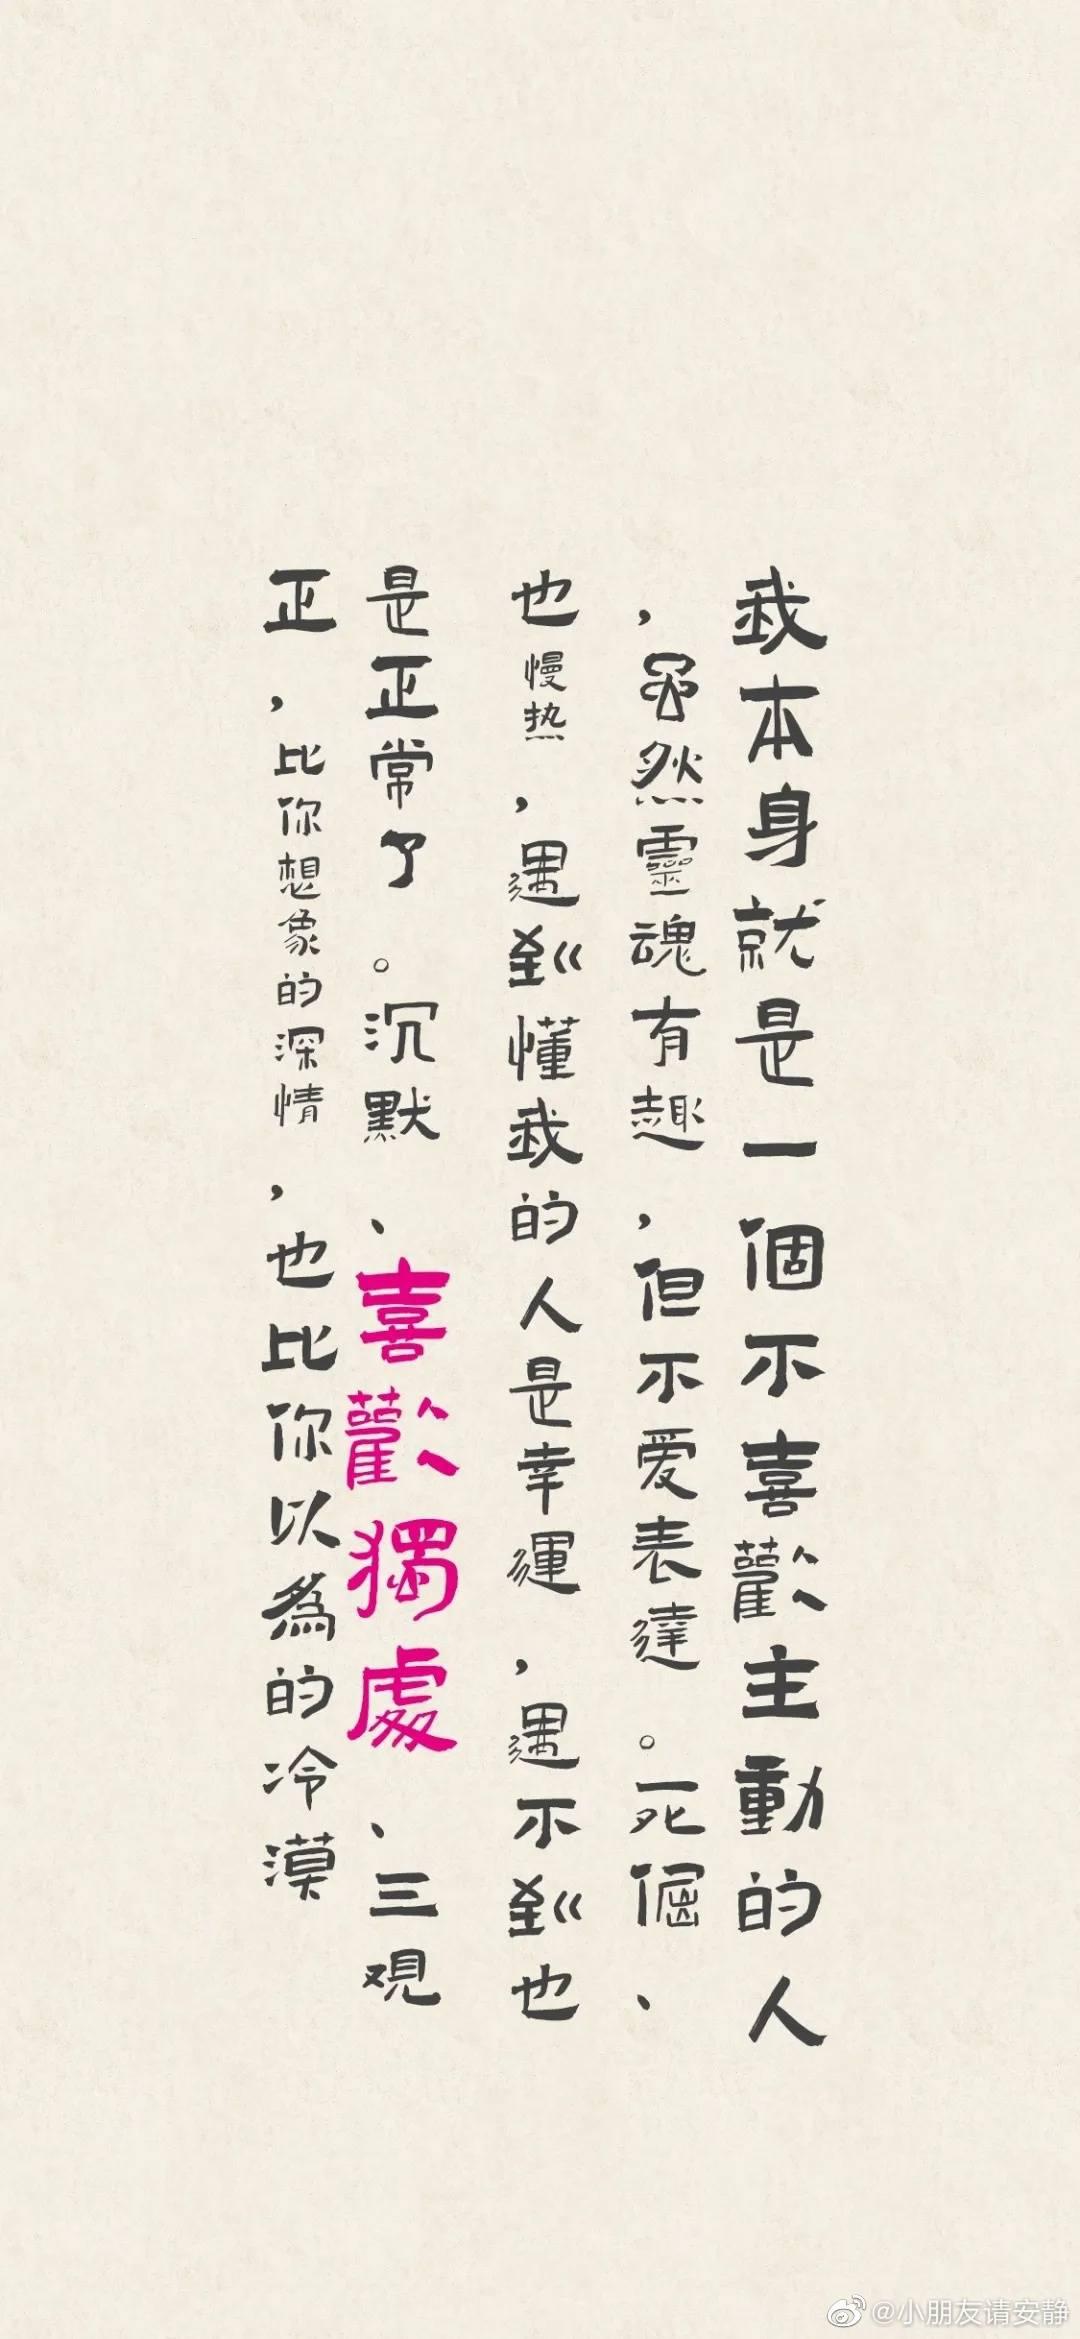 我本身就是一個不喜歡主動的人
，虽然靈魂有趣，但不爱表達。死倔、
也慢热，遇到懂我的人是幸運，遇不到也
是正常了。沉默、喜歡獨處、三观
正，比你想象的深情，也比你以為的冷漠
@小朋友请安静